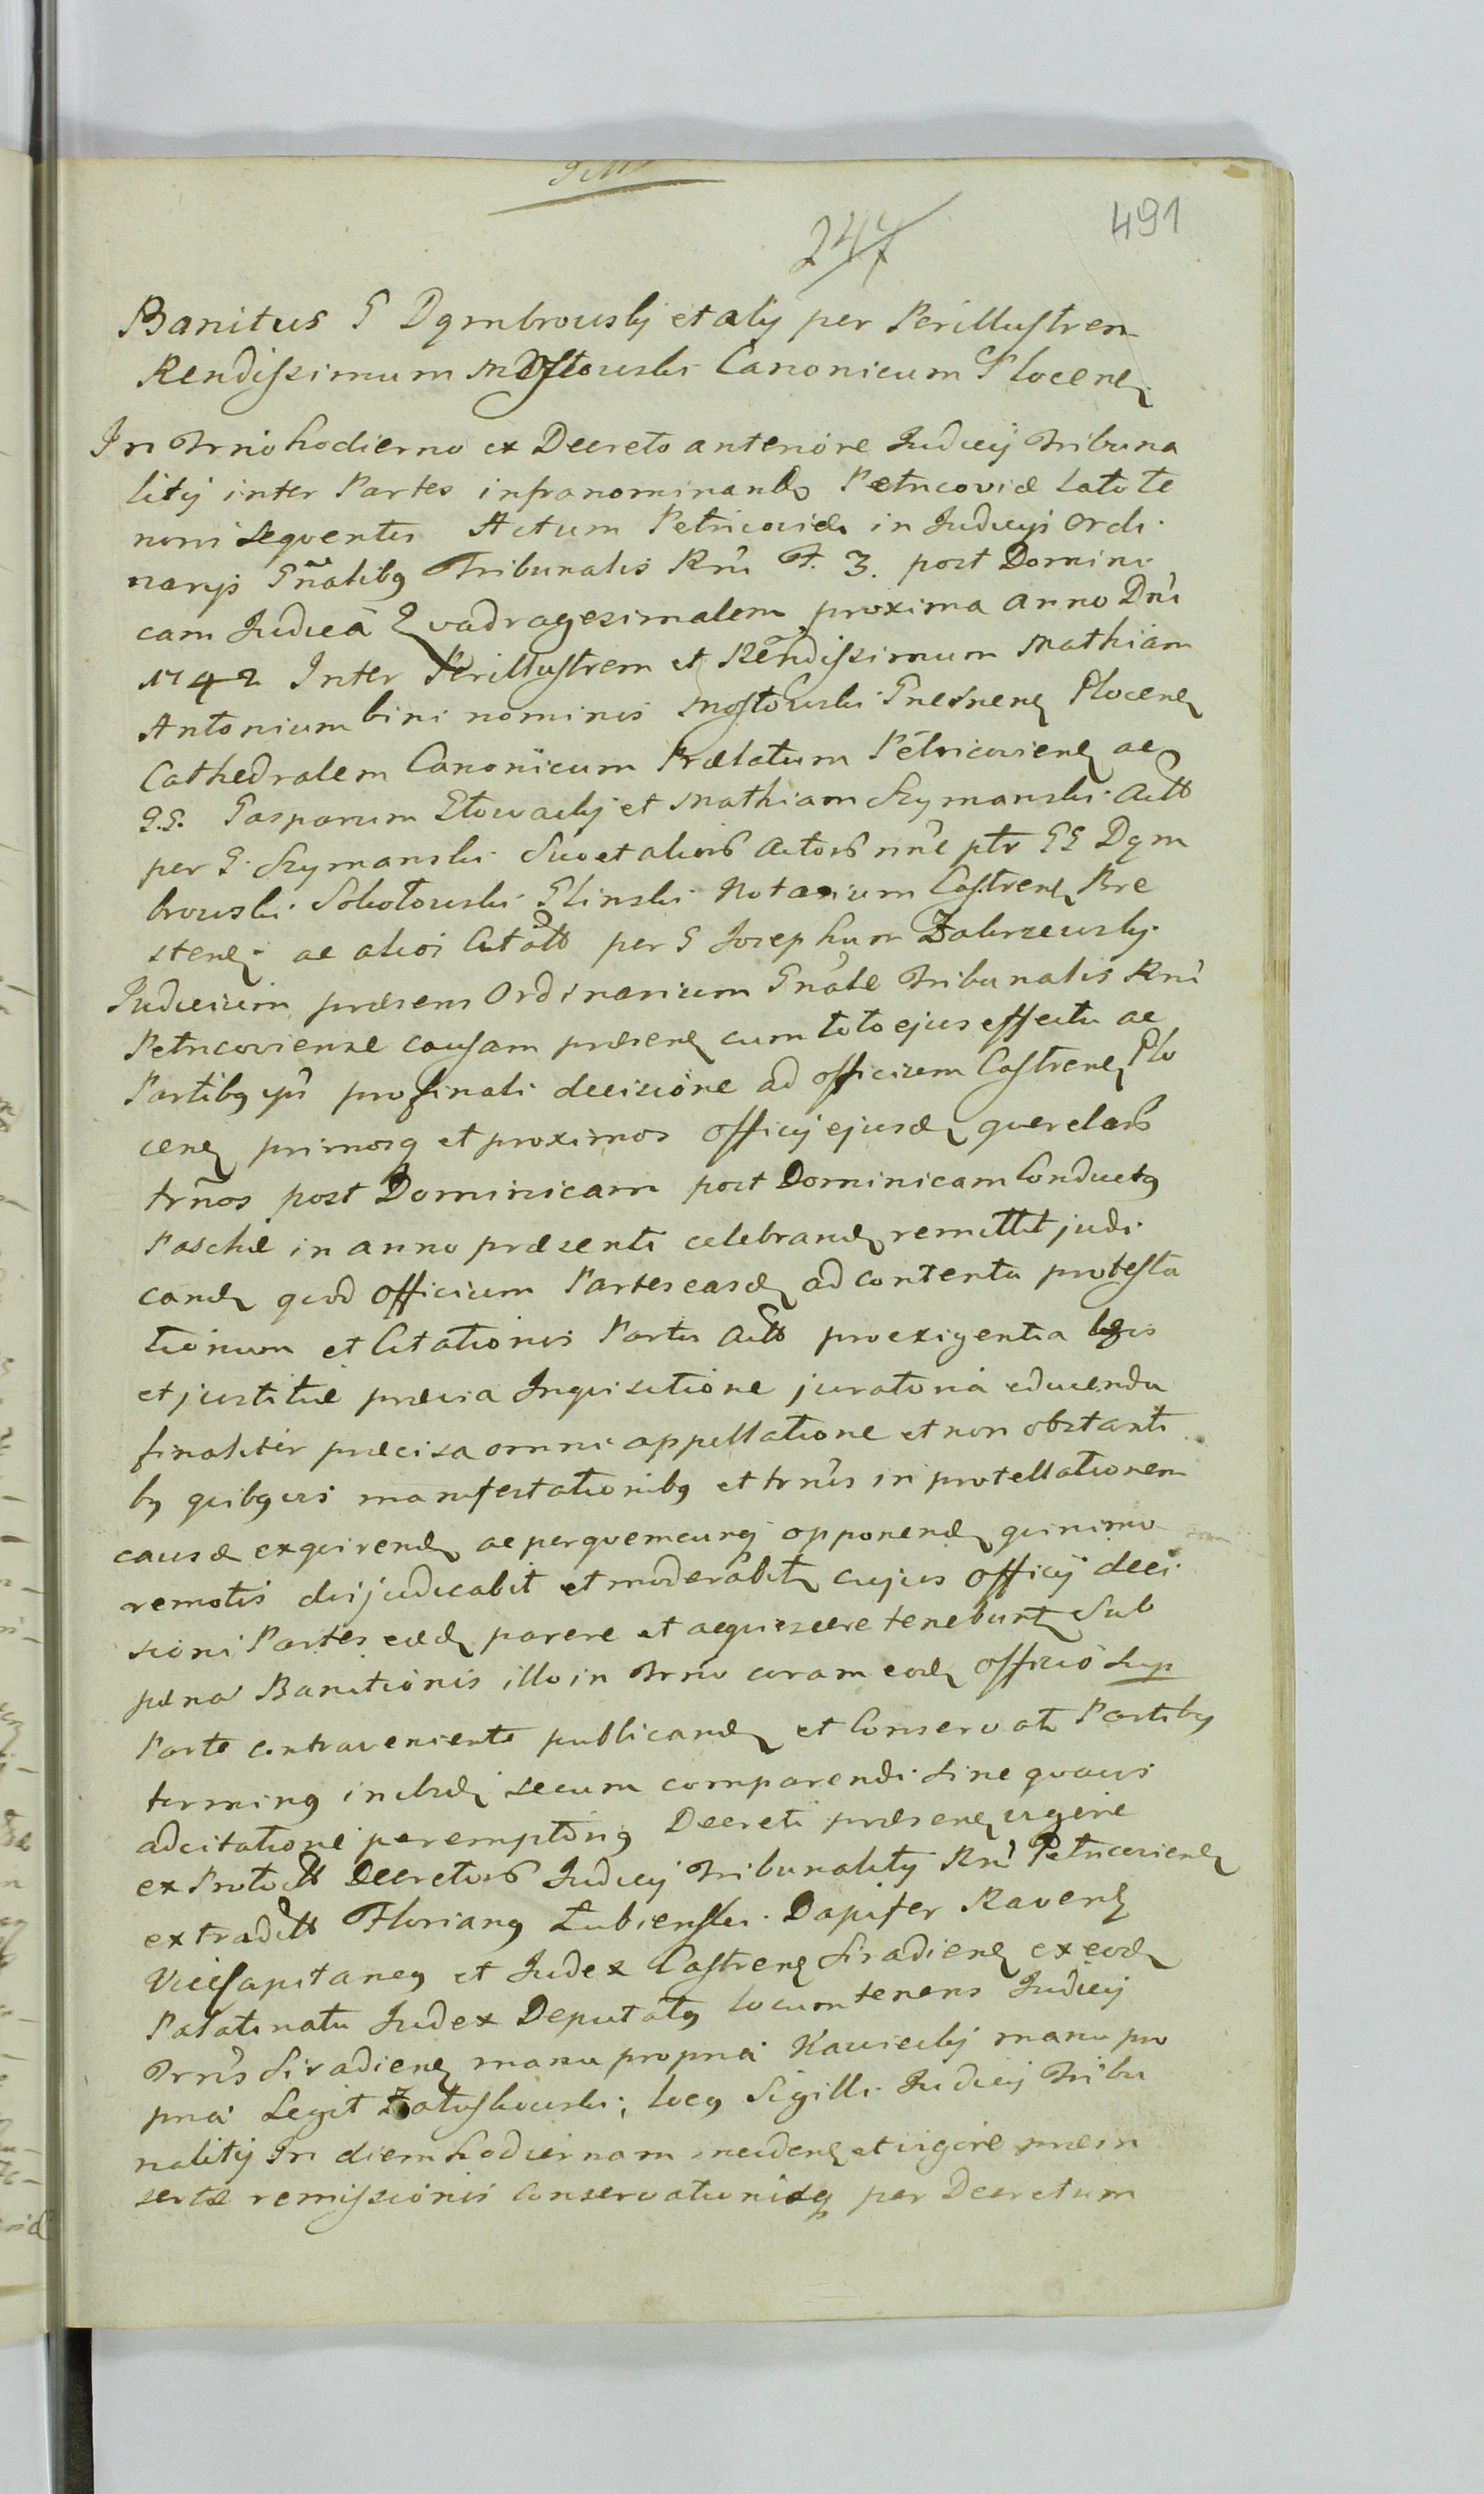 247
491
Banitus G Dąmbrouskj et alij per Perillustrem
Rendissimum Mostouski Canonicum Plocenꝫ
In Trno hodierno ex Decreto anteriore Judicij Tribuna
litij inter Partes infranominandꝫ Petricoviæ lato te
noris sequentis Actum Petricoviæ in Judicijs Ordi
narijs Gñalibꝫ Tribunalis Rni F. 3. post Domini
cam Judicã Quadragesimalem proxima anno Dni
1742 Inter Perillustrem et Rendissimum Mathiam
Antonium bini nominis Mostouski Gnesnenꝫ Plocenꝫ
Cathedralem Canonicum Prælatum Petricovienꝫ ac
G.G. Gasparum Głowackj et Mathiam Szymanski Actt
per G. Szymanski Suo et aliorũ Actorũ nne ptr GG Dąm
brouski Sokołouski Glinski Notarium Castrenꝫ Bre
stenꝫ ac alios Citatt per G Josephum Zakrzewskj
Judicium præsens Ordinarium Gnale Tribunalis Rni
Petricoviense causam præsenꝫ cum toto ejus effectu ac
Partibꝫ ips pro finali decisione ad officium Castrenꝫ Plo
cenꝫ primosqꝫ et proximos officij ejusdꝫ querelarũ
trños post Dominicam post Dominicam Conductꝫ
Paschæ in anno præsenti celebrandꝫ remittit judi
candꝫ quod officium Partes easdꝫ ad contenta protesta
tionum et Citationis Partis Actt pro exigentia legis
et justitiæ prævia Inquisitione juratoria educenda
finaliter præcisa omni appellatione et non obstanti
bꝫ quibꝫvis manifestationibꝫ et trnis in protellationem
causæ exquirendꝫ ac per quemcunqꝫ opponendꝫ quinimo
remotis dijudicabit et moderabitꝫ cujus officij deci
sioni Partes eædꝫ parere et acquiescere tenebuntꝫ Sub
pæna Banitionis illo in Trno coram eodꝫ officio Sup
Parte contraveniente publicandꝫ et Conservat Partibꝫ
terminꝫ inibidꝫ secum comparendi Sine quavis
adcitatione peremptoriꝫ Decreti præsenꝫ vigore
ex Protocoll Decretorũ Judicij Tribunalitij Rni Petricovienꝫ
extraditt Florianꝫ Łubienski Dapifer Ravenꝫ
Vicesapitaneꝫ et Judex Castrenꝫ Siradienꝫ ex eodꝫ
Palatinatu Judex Deputatꝫ locumtenens Judicij
Trris Siradienꝫ manu propria Kawieckj manu pro
pria Legit Załuskouski; locꝫ Sigilli Judicij Tribu
nalitij In diem hodiernam incidenꝫ et vigore præin
sertæ remissionis conservationisqꝫ per Decretum